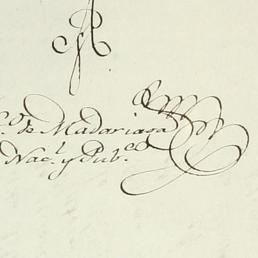 co. de Madariaga
Nacl. y Pubco.